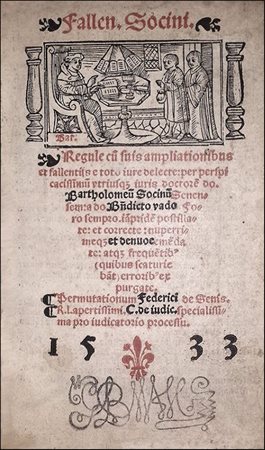 Fallen. Socini.
Bar.
Regule cũ suis ampliationibus
et fallentijs e toto iure delecte: per perspi
cacissimum vtriusq; iuris doctorẽ do.
Bartholomeũ Socinũ Senen-
sem: a do. Bñdicto vado Fo
ro sempro. impridẽ postilla-
te: et correcte: nuperri
meq; et denuo emẽda
te: atq; frequẽtib⁹
quibus scaturie
bãt, errorib⁹ ex
purgate.
Permutationum Federici de Senis.
R. Lapertissimi. C. de iudic. specialissi-
ma pro iudicatorio processu.
1 5 33